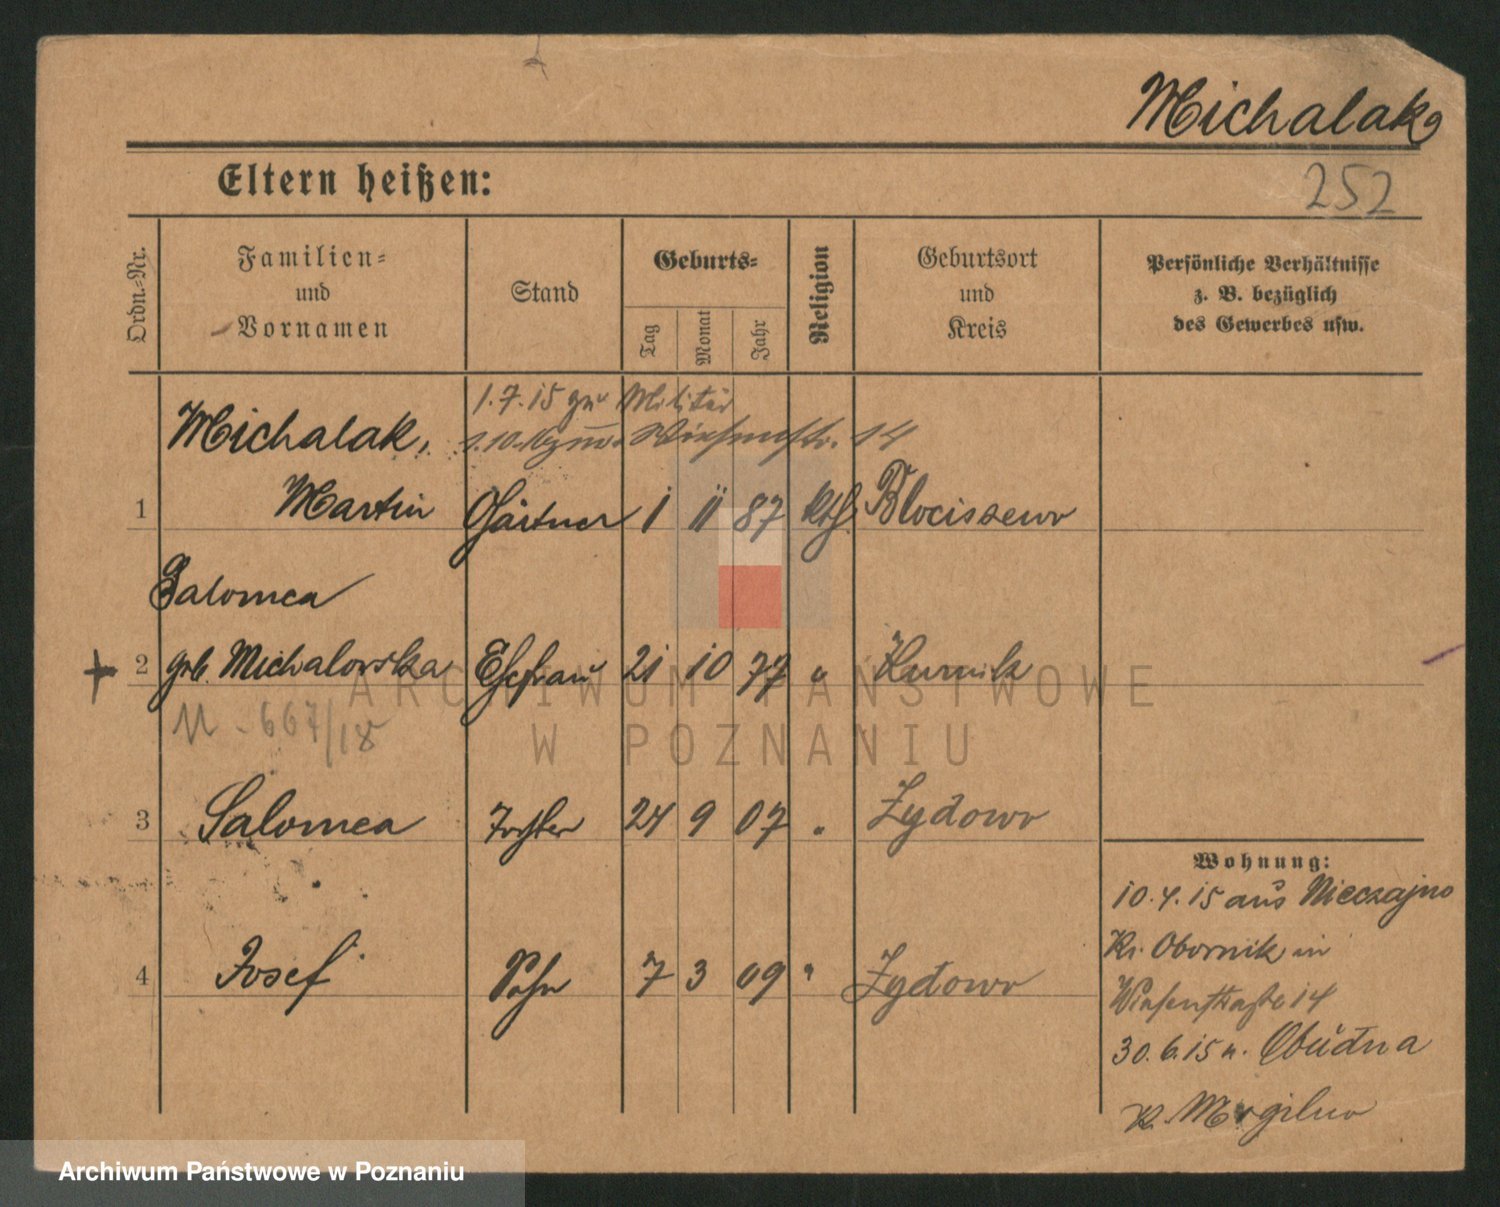 Michalak
252
Eltern heißen:
Ordn.-Nr.
Familien- und Vornamen
Stand
Geburts-
Tag
Monat
Jahr
Religion
Geburtsort und Kreis
Persönliche Verhältnisse
z. B. bezüglich
des Gewerbes usw.
1.7.15 zu Militär
Michalak,
1.10. 14
1 Martin Gärtner 1 11 87 kth. Blociszewo
Salomea
2 geb. Michalowska Ehefrau 21 10 77 " Kurnik
N - 667/18
3 Salomea Tochter 24 9 07 " Zydowo
4 Josef Sohn 7 3 09 " Zydowo
Wohnung:
10.4.15 aus Nieczajno
Kr. Obornik in
Wiesenstraße 14
30.6.15 n. Obudna
Kr. Mogilno
ARCHIWUM PAŃSTWOWE
W POZNANIU
Archiwum Państwowe w Poznaniu